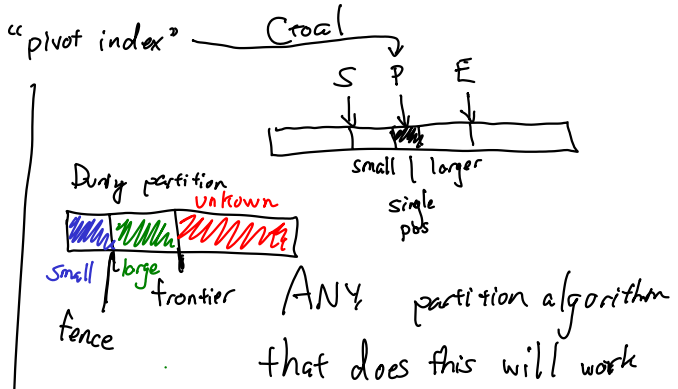 "pivot index" Goal
S P E
small | larger
single
pos
During partition
unkown
small large
fence frontier
ANY partition algorithm
that does this will work